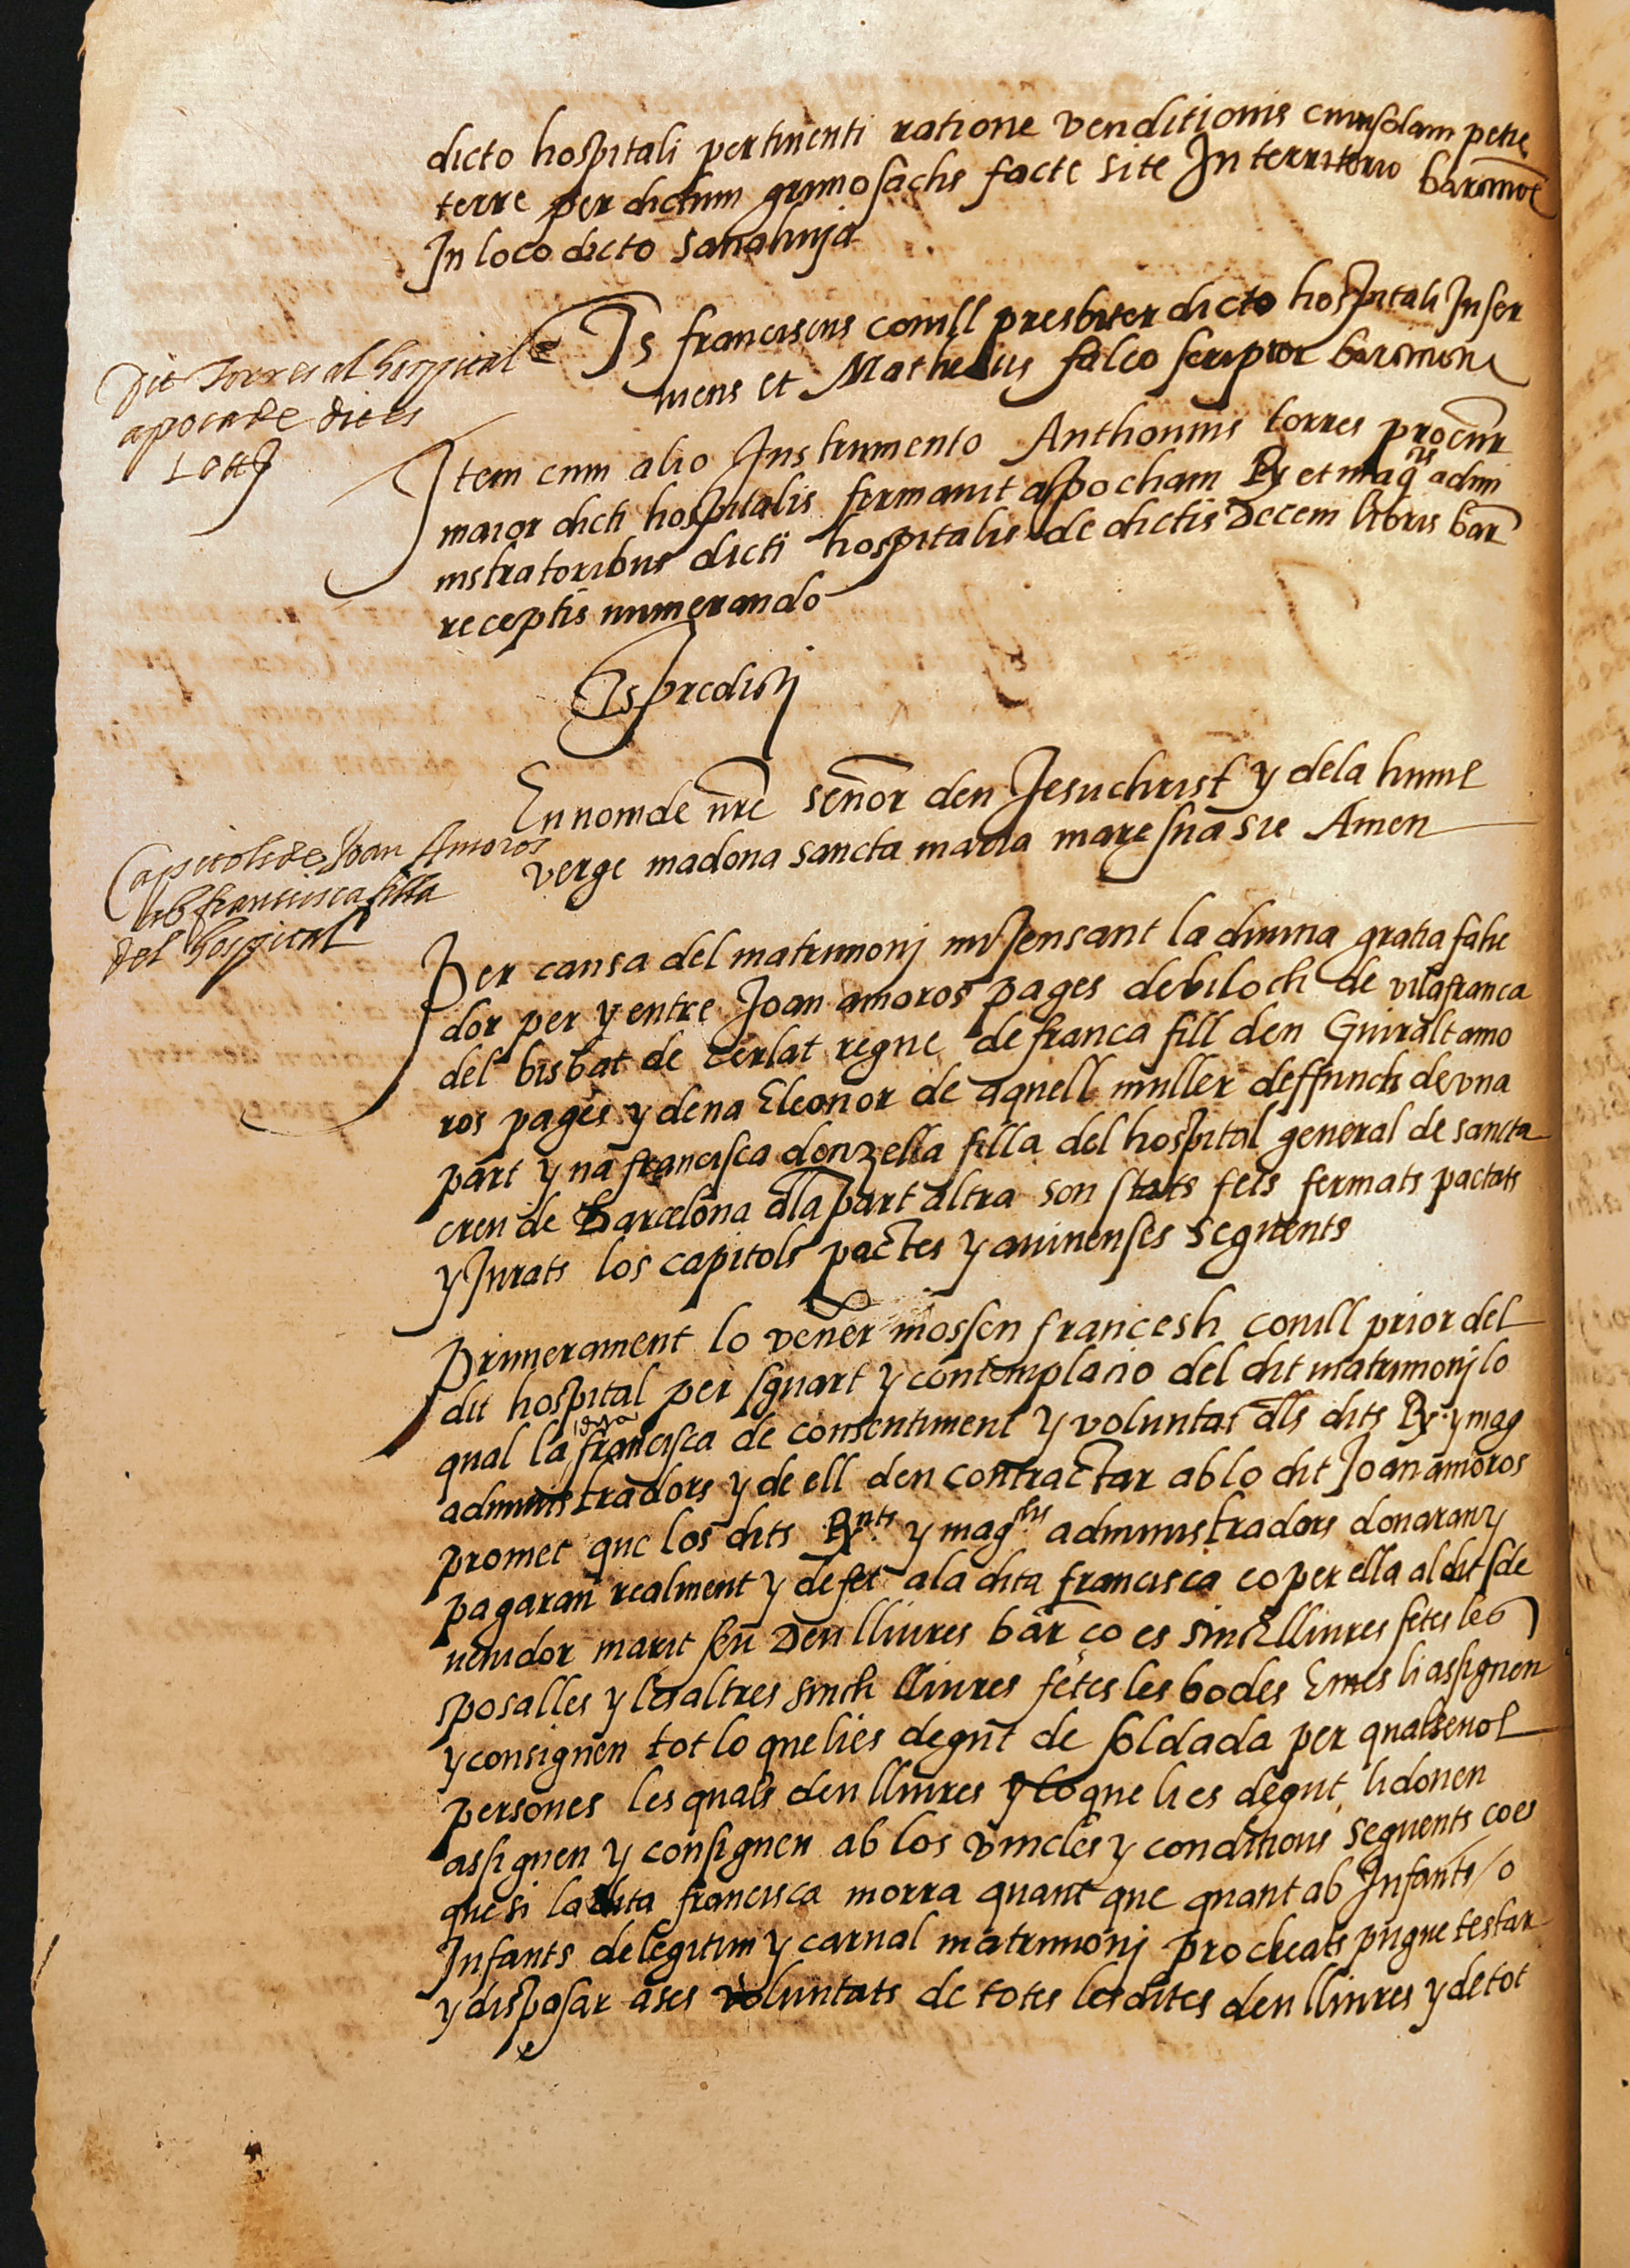 dicto hospitali pertinenti ratione venditionis cuiusdam petie
terre per dictum grimosachs facte site In territorio barcinone
In loco dicto sanahuja
Ts franciscus conill presbiter dicto hospitali Inser
uiens et Matheus falco scriptor barcinone
Dit Torres al hospital
apoca de dites
Item cum alio Instrumento Anthonius torres procur
maior dicti hospitalis firmauit apocham Rx et magcis admi
nistratoribus dicti hospitalis de dictis Decem libris bar
receptis numerando
Ts predicti
En nom de nre señor deu Jesuchrist y dela humil
verge madona sancta maria mare sua sie Amen
Capitols de Joan Amoros
ab francisca filla
del hospital
Per causa del matrimonj mijensant la diuina gratia fahe
dor per y entre Joan amoros pages de biloch de vilafranca
del bisbat de cerlat regne de franca fill den Guiralt amo
ros pages y dena Eleonor de aquell muller deffuncts de vna
part y na francisca donzella filla del hospital general de sancta
creu de Barcelona dla part altra son stats fets fermats pactats
y Jurats los capitols pactes y auinenses seguents
Primerament lo vener mossen francesh conill prior del
dit hospital per sguart y contemplacio del dit matrimonj lo
qual la francisca de consentiment y voluntat dls dits Rx y mag
administradors y de ell den contractar ab lo dit Joan amoros
promet que los dits Rxnts y magchs administradors donaran y
pagaran realment y de fet ala dita francisca co per ella al dit sde
uenidor marit seu Deu lliures bar ço es sinch lliures fetes les
sposalles y les altres sinch lliures fetes les bodes E mes li assignen
y consignen tot lo que li es degut de soldada per qualseuol
persones les quals deu lliures y lo que li es degut li donen
assignen y consignen ab los vincles y conditions seguents coes
que si la dita francisca morra quant que quant ab Infants / o
Infants de legitim y carnal matrimonj procreats pugue testar
y disposar a ses voluntats de totes les dites deu lliures y de tot